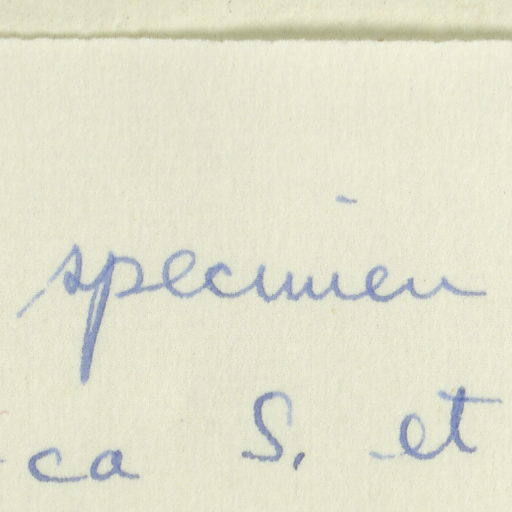 specimen
ca S. et